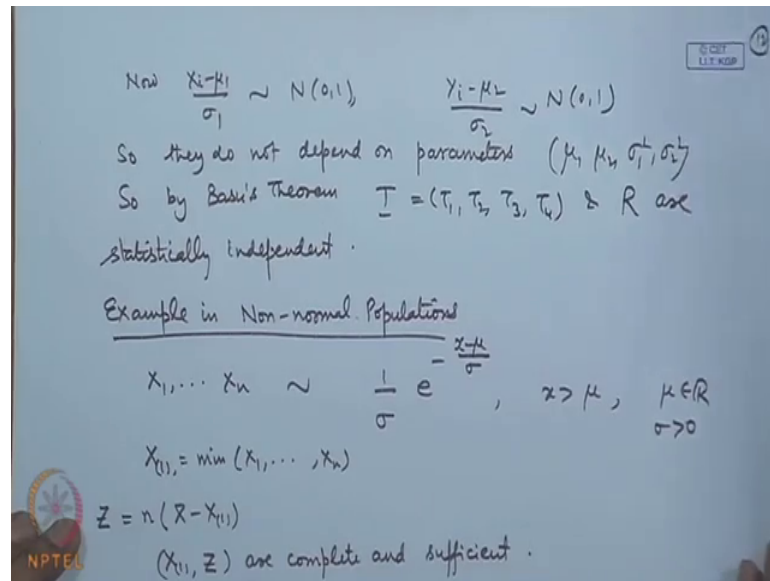 © CET
I.I.T. KGP
12
Now (Xi-μ1)/σ1 ~ N(0,1), (Yi-μ2)/σ2 ~ N(0,1)
So they do not depend on parameters (μ1, μ2, σ1², σ2²)
So by Basu's Theorem T = (T1, T2, T3, T4) & R are
statistically independent.
Example in Non-normal Populations
X1, ... Xn ~ 1/σ e^(-(x-μ)/σ), x > μ, μ ∈ ℝ
σ>0
X(1) = min (X1, ..., Xn)
Z = n(X̄ - X(1))
(X(1), Z) are complete and sufficient.
NPTEL